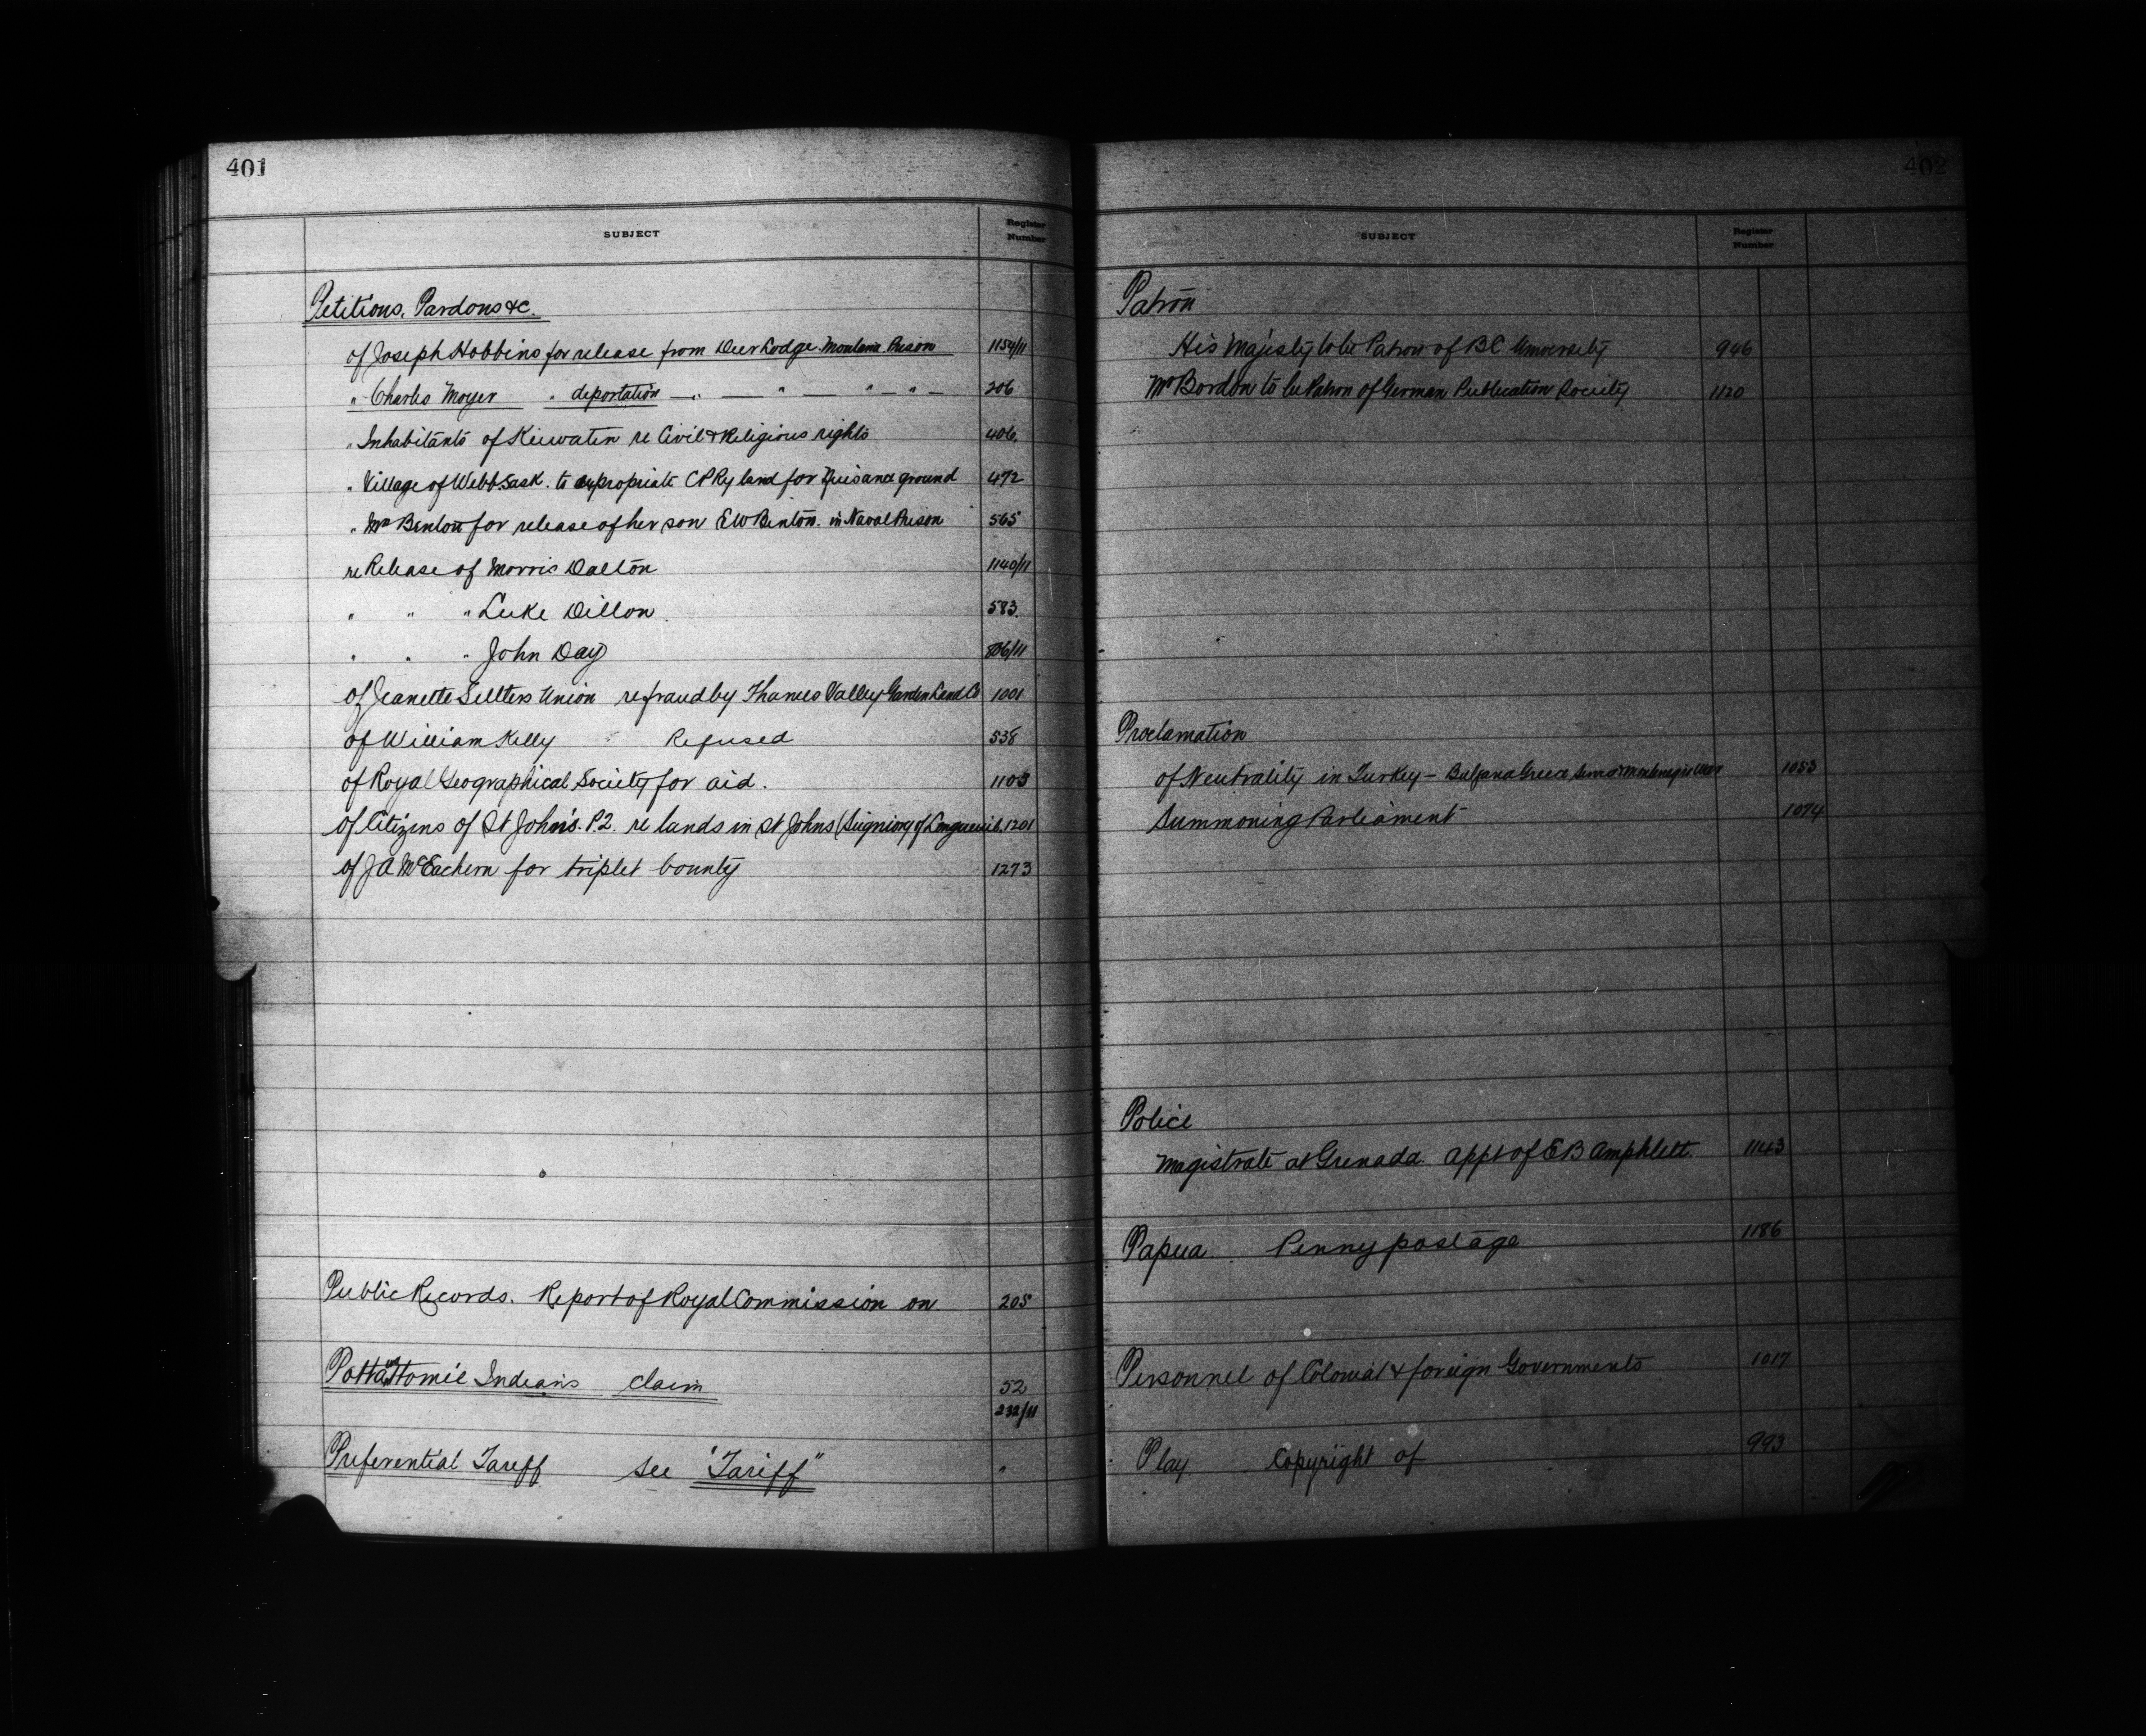 401
SUBJECT Register Number
Petitions, Pardons &c.
of Joseph Hobbins for release from Deer Lodge Montana Prison 1154/11
" Charles Moyer " deportation — " — " — " — " — 206
" Inhabitants of Keewatin re Civil & Religious rights 406.
" Village of Webb Sask. to expropriate CPRy land for Nuisance ground 472
" Mrs Benton for release of her son EW Benton. in Naval Prison 565
re Release of Morris Dalton 1140/11
" " " Luke Dillon. 583.
" " " John Day /11
of Jeanette Settlers Union re fraud by Thames Valley Garden Land Co 1001
of William Kelly Refused 538
of Royal Geographical Society for aid. 1103
of Citizens of St John's. P.2. re lands in St Johns (Seigniory of 1201
of JA McEachern for triplet bounty 1273
Public Records. Report of Royal Commission on 205
Pottawattomie Indians claim 52
232/11
Preferential Tariff see "Tariff" "
402
SUBJECT Register Number
Patron
His Majesty to be Patron of BC University 946
Mr Bordon to be Patron of German Publication Society 1120
Proclamation
of Neutrality in Turkey – Greece War 1053
Summoning Parliament 1074
Police
Magistrate at Grenada. Appt of EB Amphlett. 1143
Papua Penny postage 1186
Personnel of Colonial & foreign Governments 1017
Play Copyright of 993